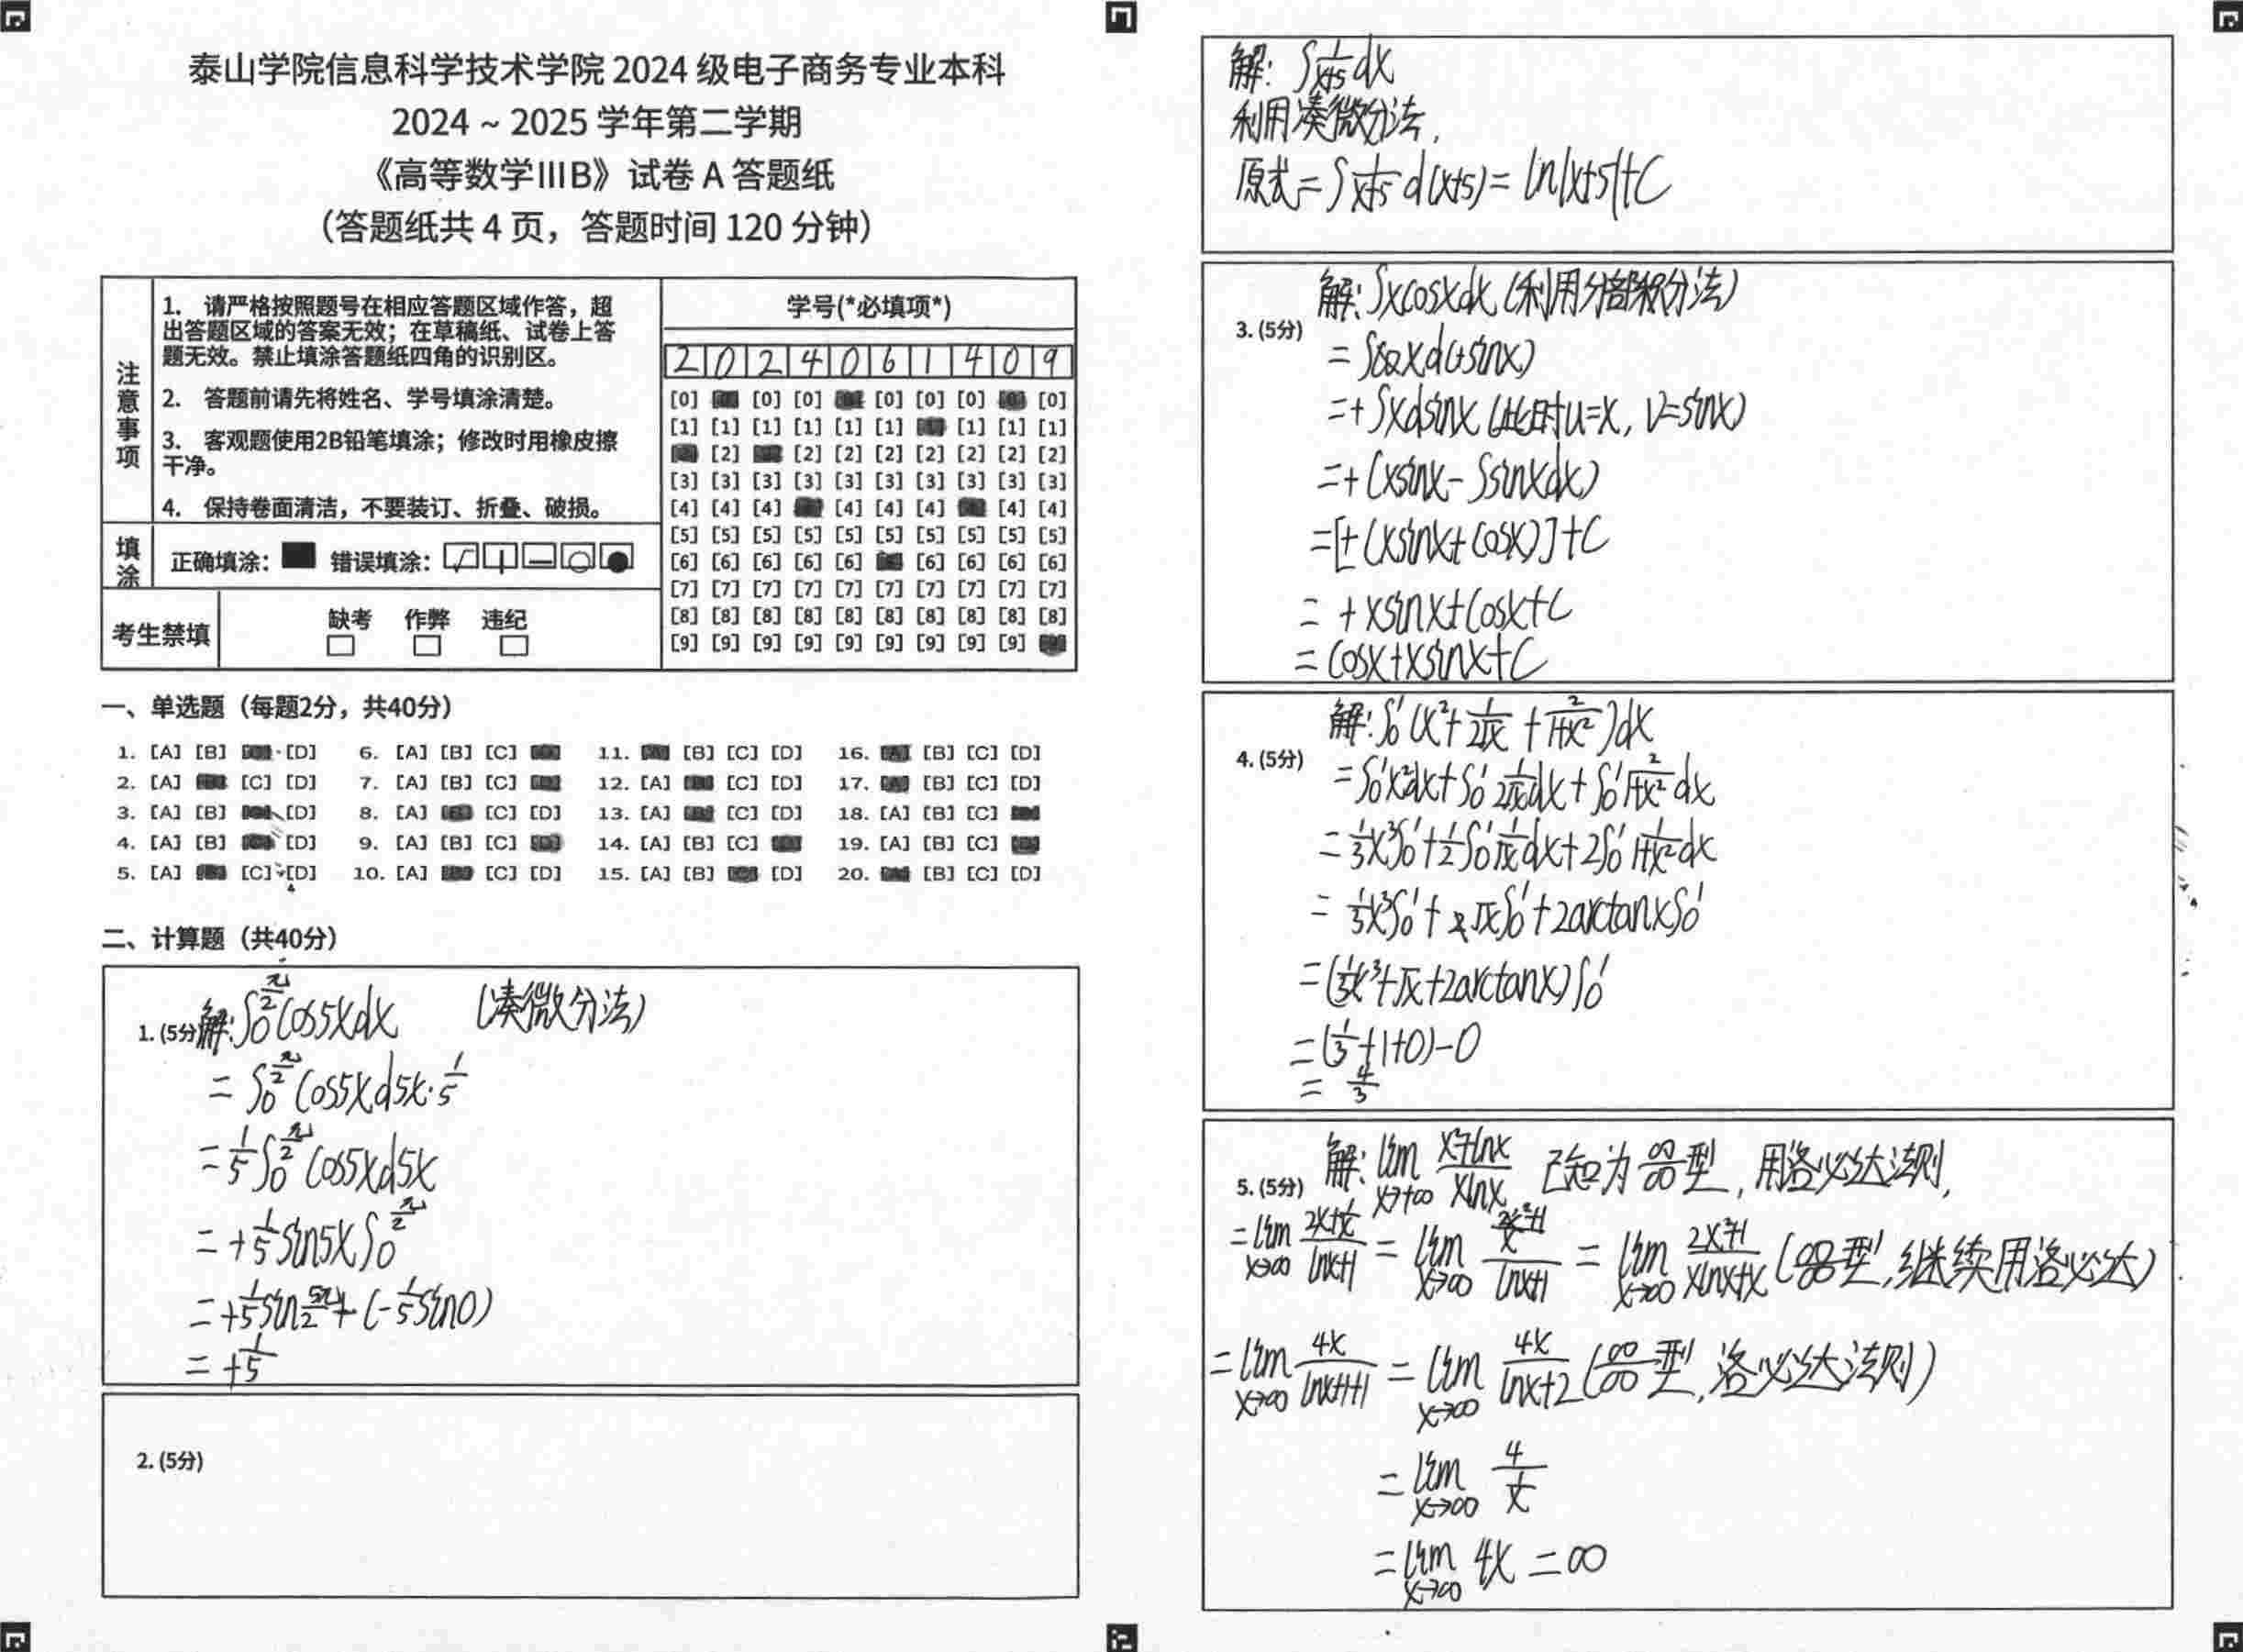 泰山学院信息科学技术学院 2024 级电子商务专业本科
2024 ~ 2025 学年第二学期
《高等数学IIIB》试卷 A 答题纸
（答题纸共 4 页，答题时间 120 分钟）
注意事项
1. 请严格按照题号在相应答题区域作答，超
出答题区域的答案无效；在草稿纸、试卷上答
题无效。禁止填涂答题纸四角的识别区。
2. 答题前请先将姓名、学号填涂清楚。
3. 客观题使用2B铅笔填涂；修改时用橡皮擦
干净。
4. 保持卷面清洁，不要装订、折叠、破损。
填涂
正确填涂： 错误填涂：
考生禁填
缺考 作弊 违纪
学号(*必填项*)
2 0 2 4 0 6 1 4 0 9
[0] [0] [0] [0] [0] [0] [0]
[1] [1] [1] [1] [1] [1] [1] [1] [1]
[2] [2] [2] [2] [2] [2] [2] [2]
[3] [3] [3] [3] [3] [3] [3] [3] [3] [3]
[4] [4] [4] [4] [4] [4] [4] [4]
[5] [5] [5] [5] [5] [5] [5] [5] [5] [5]
[6] [6] [6] [6] [6] [6] [6] [6] [6]
[7] [7] [7] [7] [7] [7] [7] [7] [7] [7]
[8] [8] [8] [8] [8] [8] [8] [8] [8] [8]
[9] [9] [9] [9] [9] [9] [9] [9] [9]
一、单选题（每题2分，共40分）
1. [A] [B] [D] 6. [A] [B] [C] 11. [B] [C] [D] 16. [A] [B] [C] [D]
2. [A] [C] [D] 7. [A] [B] [C] 12. [A] [C] [D] 17. [A] [B] [C] [D]
3. [A] [B] [D] 8. [A] [C] [D] 13. [A] [C] [D] 18. [A] [B] [C]
4. [A] [B] [D] 9. [A] [B] [C] 14. [A] [B] [C] 19. [A] [B] [C]
5. [A] [C] [D] 10. [A] [C] [D] 15. [A] [B] [D] 20. [B] [C] [D]
二、计算题（共40分）
1. (5分) 解: ∫₀^(π/2) cos5xdx （凑微分法）
= ∫₀^(π/2) cos5xd5x·1/5
= 1/5 ∫₀^(π/2) cos5xd5x
= +1/5 sin5x ∫₀^(π/2)
= +1/5 sin 5π/2 + (-1/5 sin0)
= +1/5
2. (5分)
解: ∫ 1/(x+5) dx
利用凑微分法,
原式 = ∫ 1/(x+5) d(x+5) = ln|x+5|+C
3. (5分) 解: ∫xcosxdx (利用分部积分法)
= ∫xd(+sinx)
= + ∫xdsinx (此时u=x, v=sinx)
= + (xsinx - ∫sinxdx)
= [+ (xsinx+cosx)]+C
= +xsinx+cosx+C
= cosx+xsinx+C
4. (5分) 解: ∫₀¹ (x² + 1/(2√x) + 2/(1+x²))dx
= ∫₀¹ x²dx + ∫₀¹ 1/(2√x) dx + ∫₀¹ 2/(1+x²) dx
= 1/3 x³ ∫₀¹ + 1/2 ∫₀¹ 1/√x dx + 2∫₀¹ 1/(1+x²) dx
= 1/3 x³ ∫₀¹ + √x ∫₀¹ + 2arctanx ∫₀¹
= (1/3 x³ + √x + 2arctanx) ∫₀¹
= (1/3 + 1 + 0) - 0
= 4/3
5. (5分) 解: lim x→+∞ (x²+lnx)/(xlnx) 已知为 ∞/∞ 型, 用洛必达法则,
= lim x→∞ (2x+1/x)/(lnx+1) = lim x→∞ ((2x²+1)/x)/(lnx+1) = lim x→∞ (2x²+1)/(xlnx+x) (∞/∞型, 继续用洛必达)
= lim x→∞ 4x/(lnx+1+1) = lim x→∞ 4x/(lnx+2) (∞/∞型, 洛必达法则)
= lim x→∞ 4/(1/x)
= lim x→∞ 4x = ∞